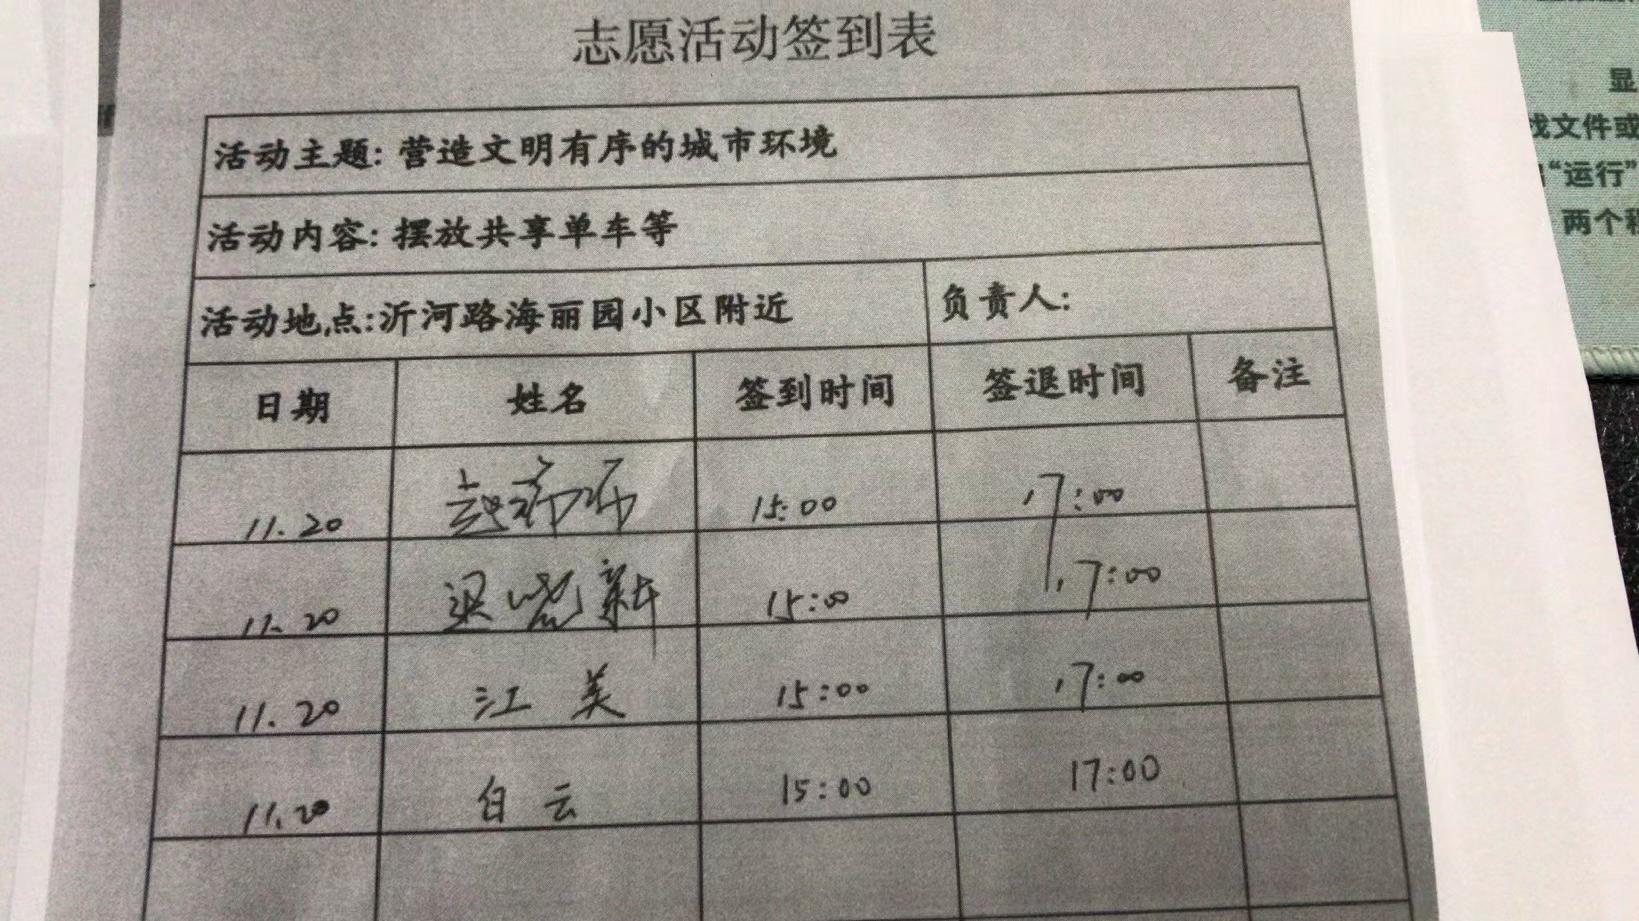 志愿活动签到表
活动主题: 营造文明有序的城市环境
活动内容: 摆放共享单车等
活动地点:沂河路海丽园小区附近 负责人:
日期 姓名 签到时间 签退时间 备注
11.20 15:00 17:00
11.20 梁晓新 15:00 17:00
11.20 江美 15:00 17:00
11.20 白云 15:00 17:00
显
找文件或
“运行”
两个程